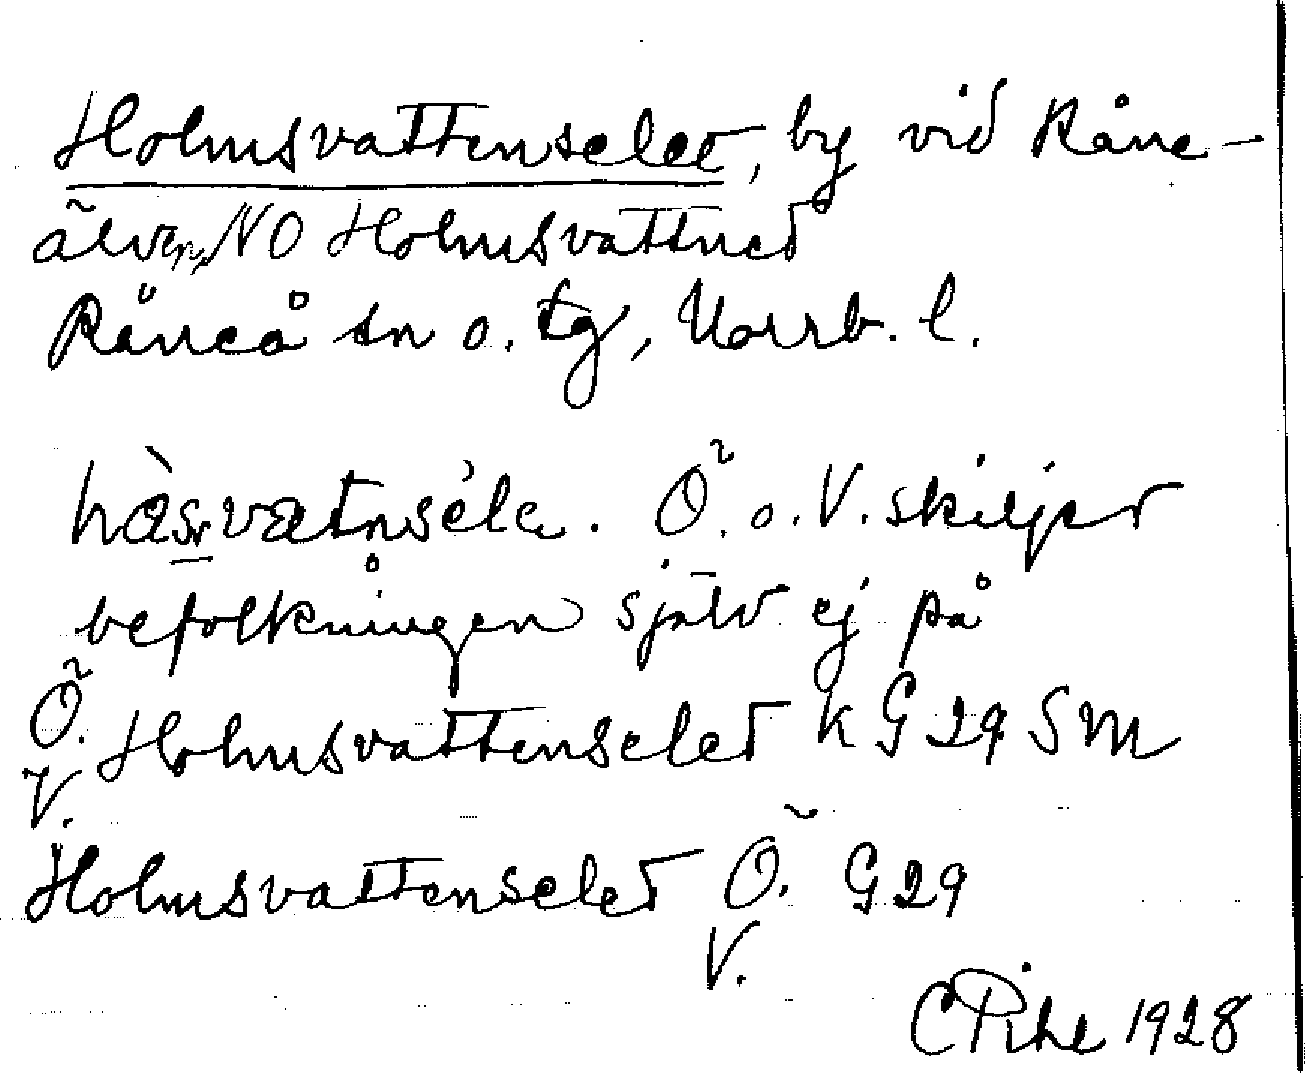 Holmsvattenselet, by vid Råne-
älven, NO Holmsvattnet
Råneå sn o. tg, Norrb. l.
Ö. o. V. skiljer
befolkningen själv ej på
Ö. V. Holmsvattenselet k G 29 SM
Holmsvattenselet Ö. V. G 29
C Pihl 1928